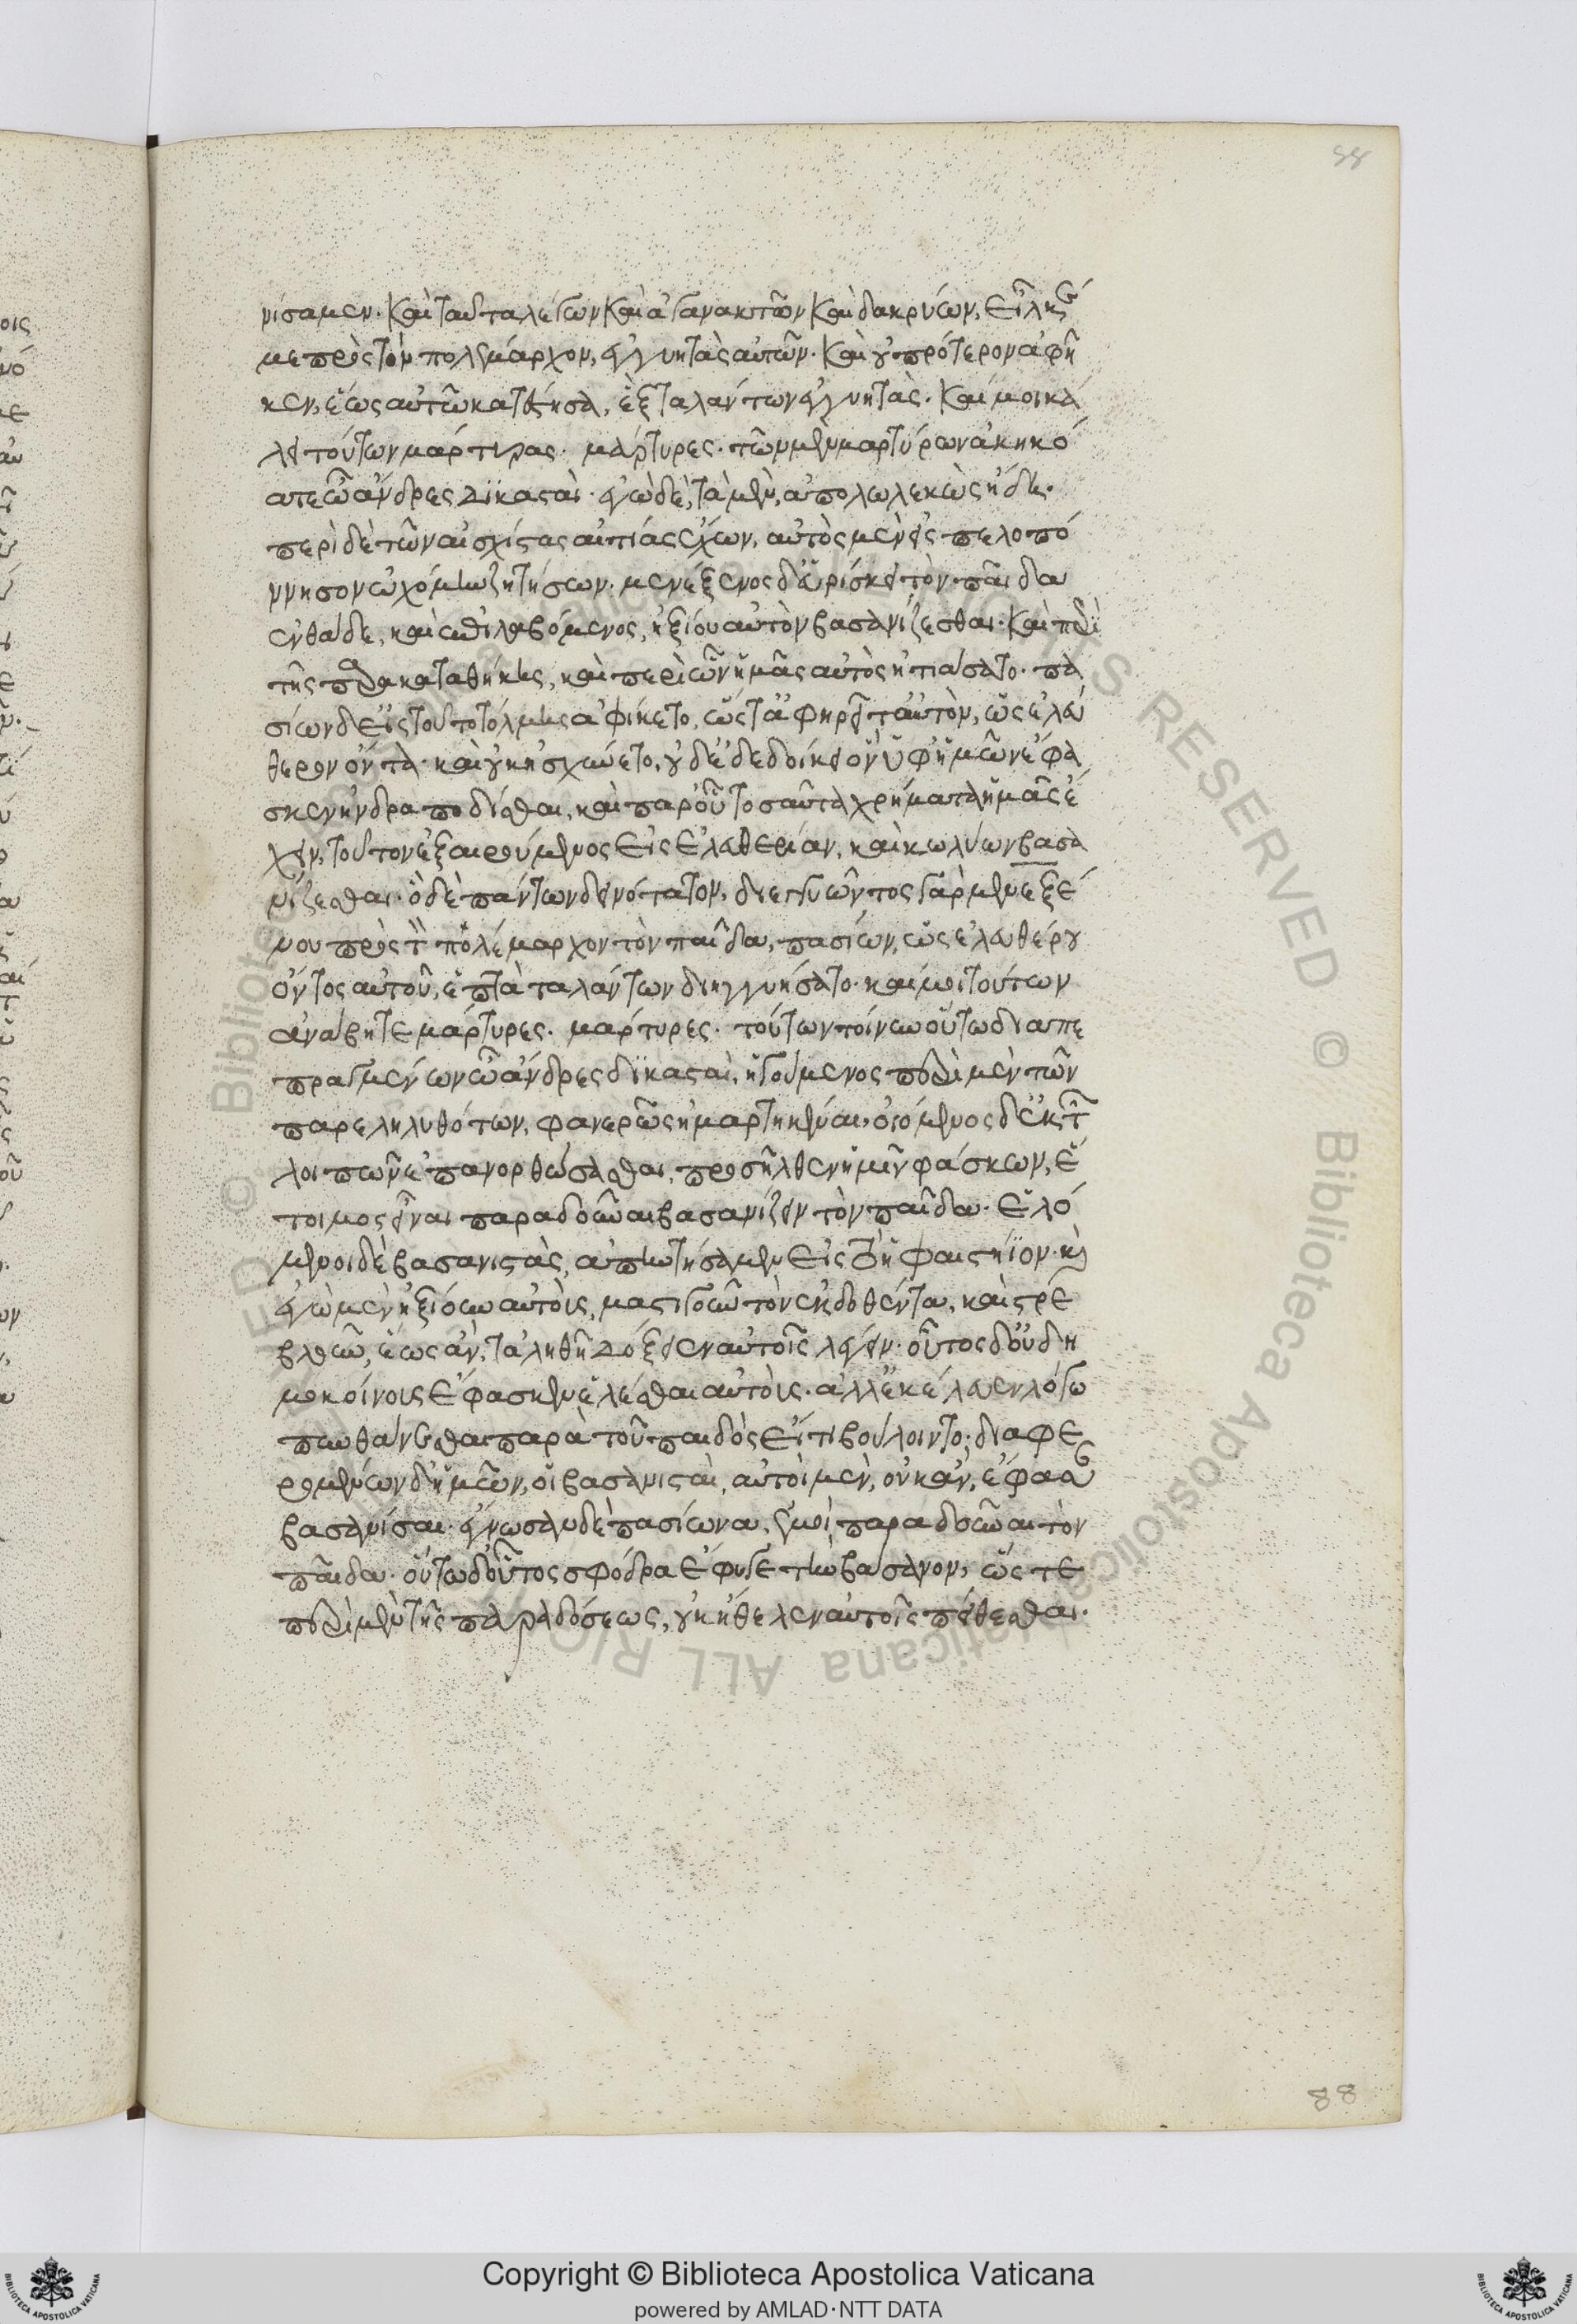 88
νίσαμεν. Καὶ ταῦτα λέγων Καὶ ἀγανακτῶν Καὶ δακρύων, εἷλκέ
με πρὸς τὸν πολέμαρχον, ἐγγυητὰς αἰτῶν. Καὶ οὐ πρότερον ἀφῆ
κεν, ἕως αὐτῶ κατέστησα, ἓξ ταλάντων ἐγγυητάς. Καί μοι κά
λει τούτων μάρτυρας. μάρτυρες. τῶν μὲν μαρτύρων ἀκηκό
ατε ὦ ἄνδρες δικασταί. ἐγὼ δὲ, τὰ μὲν, ἀπολωλεκὼς ἤδη.
περὶ δὲ τῶν αἰσχίστας αἰτίας ἔχων, αὐτὸς μὲν εἰς πελοπό
ννησον ὠχόμην ζητήσων. μενέξενος δ' εὑρίσκει τὸν παῖδα
ἐνθάδε, καὶ ἐπιλαβόμενος, ἠξίου αὐτὸν βασανίζεσθαι. Καὶ περὶ
τῆς παρακαταθήκης, καὶ περὶ ὧν ἡμᾶς αὐτὸς ἠτιάσατο. πα
σίων δ' εἰς τοῦτο τόλμης ἀφίκετο, ὥστ' ἀφηρεῖτ' αὐτὸν, ὡς ἐλεύ
θερον ὄντα. καὶ οὐκ ἠσχύνετο, οὐδ' ἐδεδοίκει ὃν ὑφ' ἡμῶν ἔφα
σκεν ἠνδραποδίσθαι, καὶ παρ' οὗ τοσαῦτα χρήματα ἡμᾶς ἔ
χειν, τοῦτον ἐξαιρούμενος εἰς ἐλευθερίαν, καὶ κωλύων βασα
νίζεσθαι. ὃ δὲ πάντων δεινότατον, διεγγυῶντος γὰρ μενεξέ
νου πρὸς τὸν πολέμαρχον τὸν παῖδα, πασίων, ὡς ἐλευθέρου
ὄντος αὐτοῦ, ἑπτὰ ταλάντων διηγγυήσατο. καί μοι τούτων
ἀνάβητε μάρτυρες. μάρτυρες. τούτων τοίνυν οὕτω διαπε
πραγμένων ὦ ἄνδρες δικασταὶ, ἡγούμενος περὶ μὲν τῶν
παρεληλυθότων, φανερῶς ἡμαρτηκέναι, οἰόμενος δ' ἐκ τῶν
λοιπῶν ἐπανορθώσασθαι, προσῆλθεν ἡμῖν φάσκων, ἕ
τοιμος εἶναι παραδοῦναι βασανίζειν τὸν παῖδα. ἑλό
μενοι δὲ βασανιστὰς, ἀπηντήσαμεν εἰς τὸ ἡφαιστήϊον. καὶ
ἐγὼ μὲν ἠξίουν αὐτοὺς, μαστιγοῦν τὸν ἐκδοθέντα, καὶ στρε
βλοῦν, ἕως ἂν, τἀληθῆ δόξειεν αὐτοῖς λέγειν. οὗτος δ' οὐ δη
μοκοίνους ἔφασκεν ἑλέσθαι αὐτοὺς. ἀλλ' ἐκέλευεν λόγω
πυνθάνεσθαι παρὰ τοῦ παιδὸς εἴ τι βούλοιντο. διαφε
ρομένων δ' ἡμῶν, οἱ βασανισταὶ, αὐτοὶ μὲν, οὐκ ἂν, ἔφασαν
βασανίσαι. ἔγνωσαν δὲ πασίωνα, ἐμοὶ παραδοῦναι τὸν
παῖδα. οὕτω δ' οὗτος σφόδρα ἔφυγε τὴν βάσανον, ὥστε
περὶ μὲν τῆς παραδόσεως, οὐκ ἤθελεν αὐτοῖς πείθεσθαι.
88
© Biblioteca Apostolica Vaticana ALL RIGHTS RESERVED
Copyright © Biblioteca Apostolica Vaticana
powered by AMLAD·NTT DATA